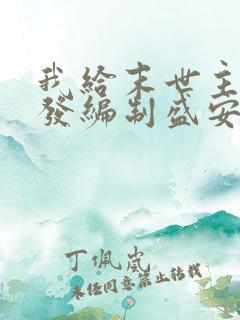 我給末世主
發編制盛安
丁佩嵐
未经同意禁止转载